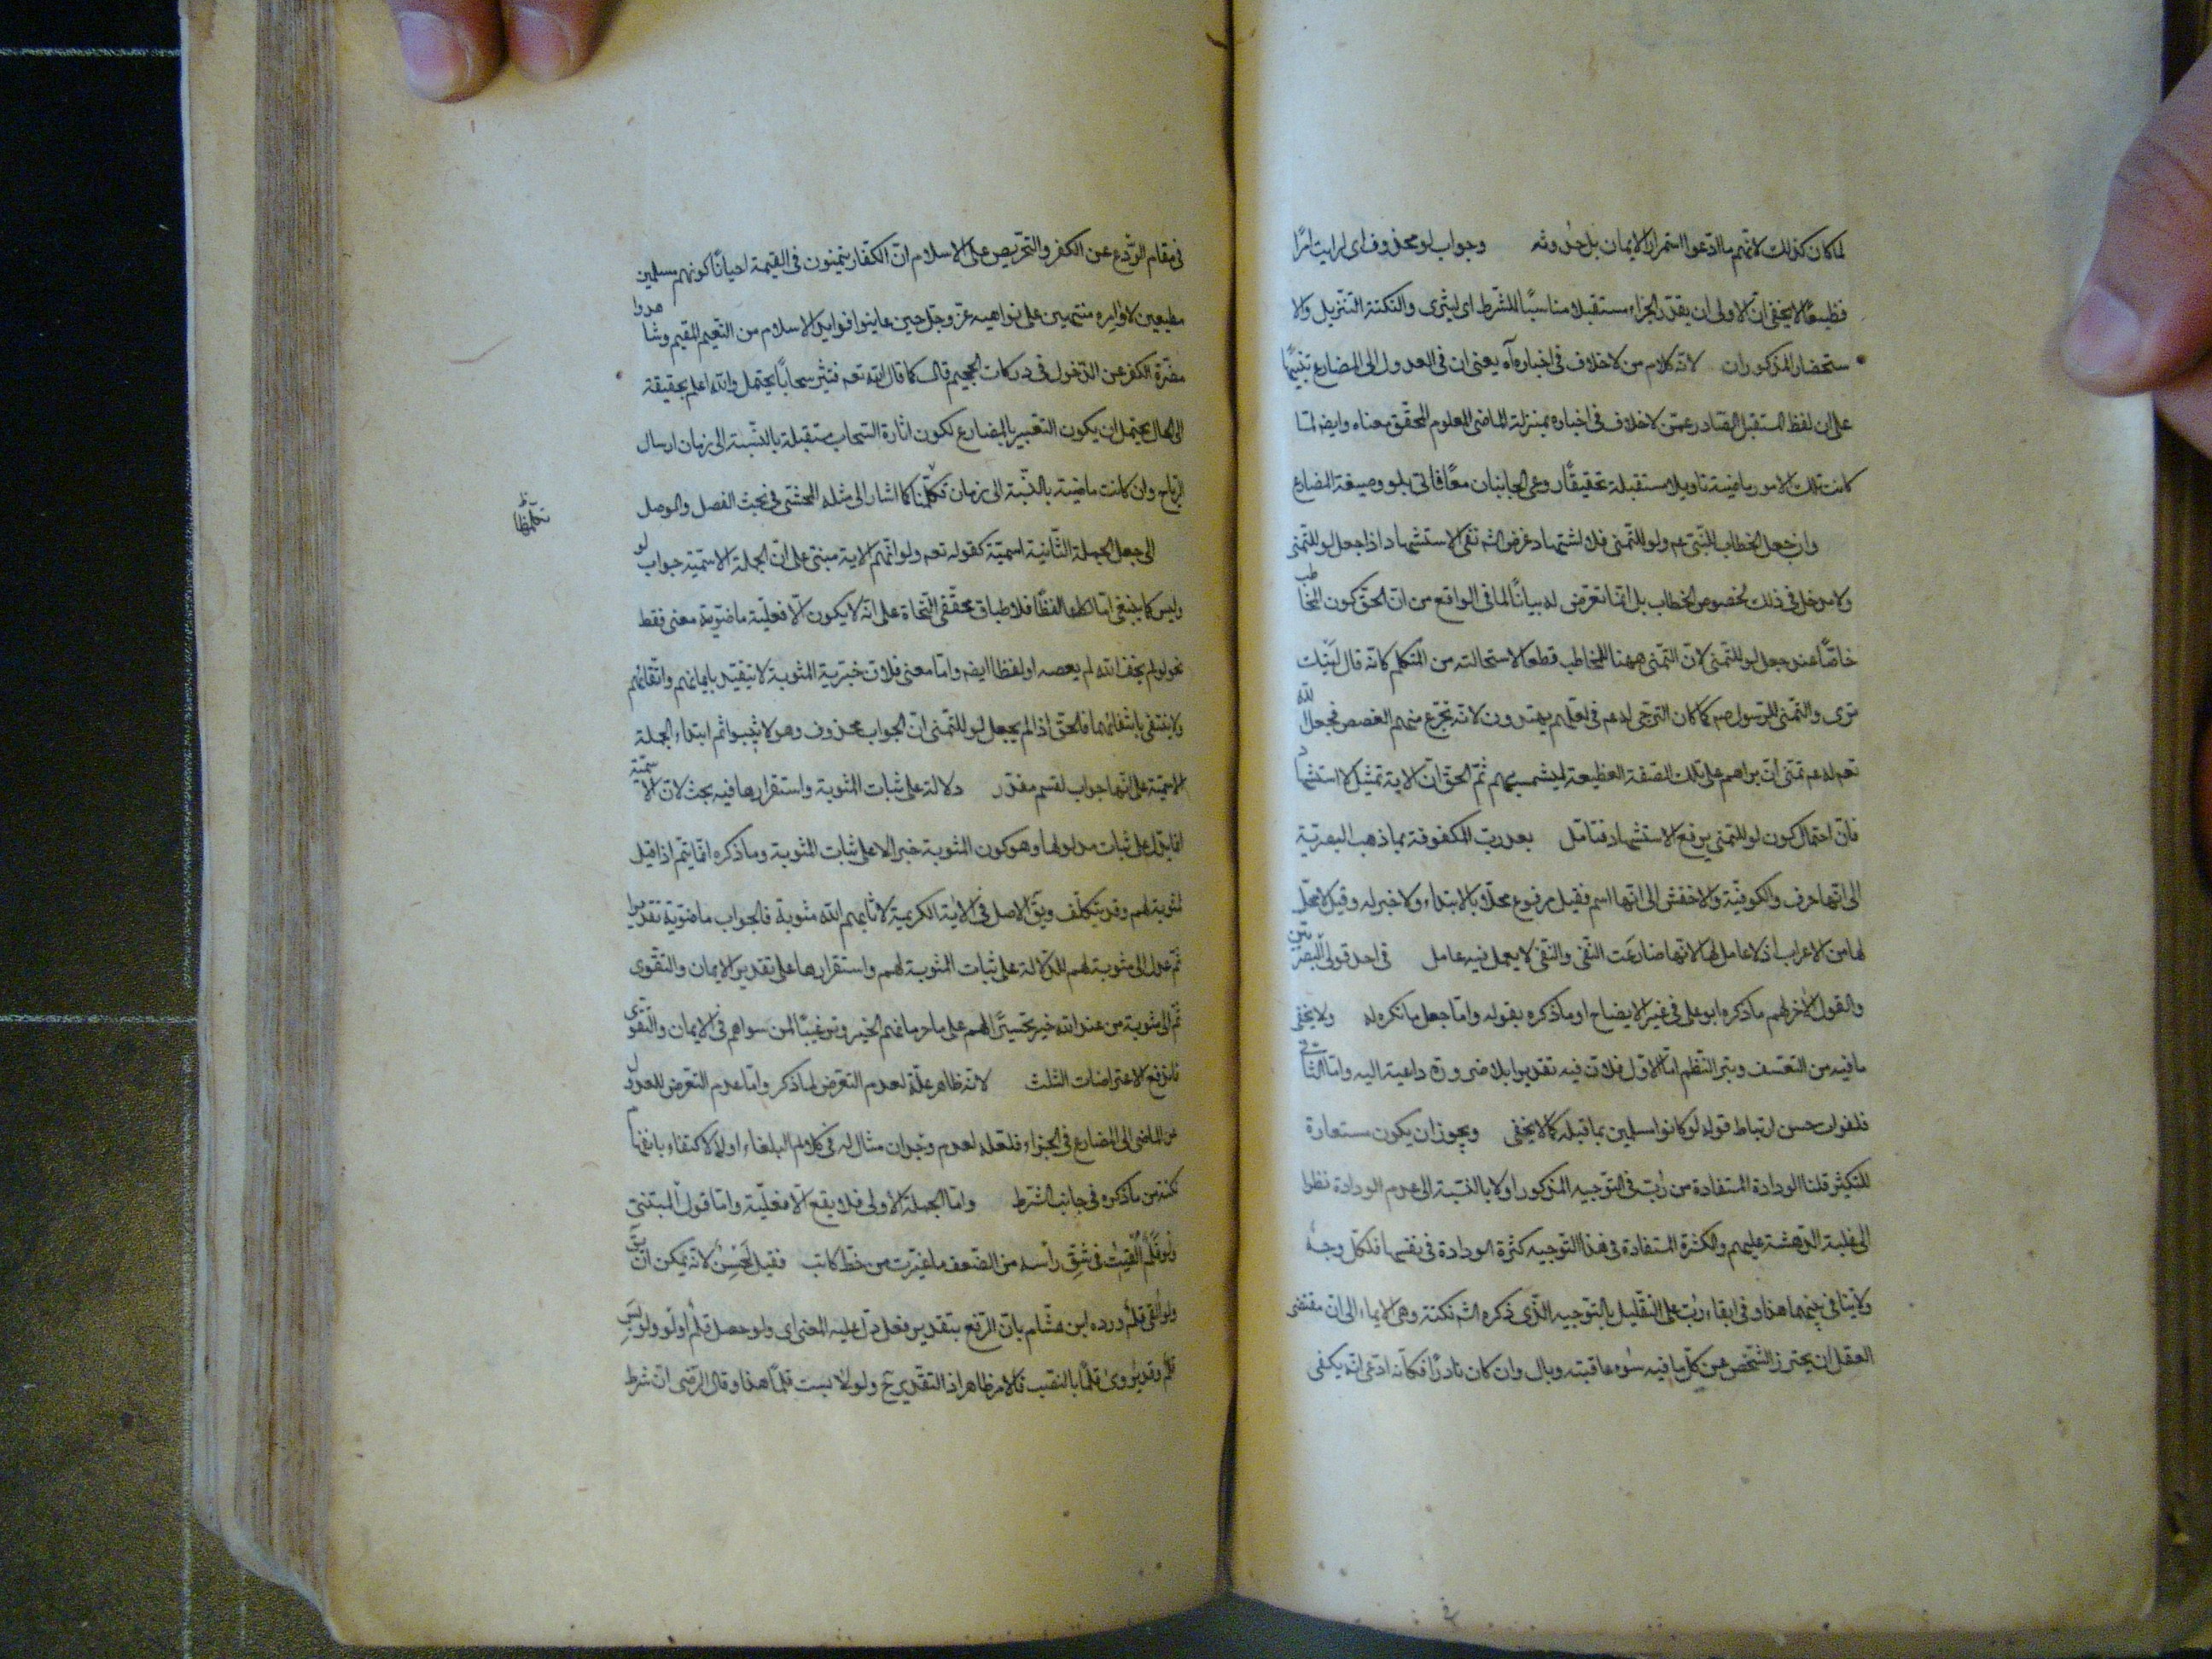 لما كان كذلك لانهم ما ادعوا استمرار الايمان بل حدوثه وجواب لو محذوف اى لرايت امرًا
فظيعًا لا يخفى ان الاولى ان يقدر الجزاء مستقبلا مناسبًا للشرط اى لترى والنكتة التنزيل والا
ستحضار المذكوران لانه كلام من لا خلاف فى اخباره آه يعنى ان فى العدول الى المضارع تنبيهًا
على ان لفظ المستقبل الصادر عمن لا خلاف فى اخباره بمنزلة الماضى المعلوم المحقق معناه وايضا لما
كانت تلك الامور ماضية تاويلا مستقبلة تحقيقًا روعى الجانبان معًا فاتى بلو وصيغة المضارع
وان جعل الخطاب للنبى عم ولو للتمنى فلا استشهاد غرض الشم نفى الاستشهاد اذا جعل لو للتمنى
ولا مدخل فى ذلك لخصوص الخطاب بل انما تعرض له بيانًا لما فى الواقع من ان الحق كون المخاطب
خاصًا عند جعل لو للتمنى لان التمنى ههنا للمخاطب قطعا لاستحالته من المتكلم كانه قال ليتك
ترى والتمنى للرسول عم كما كان الترجى له عم فى لعلهم يهتدون لانه تجرع منهم الغصص فجعل الله
تعم له عم تمنى ان يراهم على تلك الصفة الفظيعة ليشمت بهم ثم الحق ان الاية تمثيل لا استشهاد
فان احتمال كون لو للتمنى يرفع الاستشهاد فتامل بعد رب المكفوفة بما ذهب البصرية
الى انها حرف والكوفية والاخفش الى انها اسم فقيل مرفوع محلا بالابتداء ولا خبر له وقيل لا محل
لها من الاعراب اذ لا عامل لها لانها ضارعت النفى والنفى لا يعمل فيه عامل فى احد قولى البصريين
والقول الاخر لهم ما ذكره ابو على فى غير الايضاح او ما ذكره بقوله واما جعل ما نكرة له ولا يخفى
ما فيه من التعسف وبتر النظم اما الاول فلان فيه تقديرا بلا ضرورة داعية اليه واما الثانى
فلفوات حسن ارتباط قوله لو كانوا مسلمين بما قبله كما لا يخفى ويجوز ان يكون مستعارة
للتكثير قلنا الودادة المستفادة من رب فى التوجيه المذكور اولا بالنسبة الى عدم الودادة نظرا
الى غلبة الدهشة عليهم والكثرة المستفادة فى هذا التوجيه كثرة الودادة فى نفسها فلكل وجه
ولا ينافى بينهما هذا وفى ابقاء رب على التقليل بالتوجيه الذى ذكره الشم نكتة وهى الايماء الى ان مقتضى
العقل ان يحترز الشخص عن كل ما فيه سوء عاقبته وبال وان كان نادرًا فكانه ادعى انه يكفى
فى مقام الردع عن الكفر والتحريص على الاسلام ان الكفار يتمنون فى القيمة احيانًا كونهم مسلمين
مطيعين لاوامره منتهين عن نواهيه عز وجل حين عاينوا فوايد الاسلام من النعيم المقيم وشاهدوا
مضرة الكفر عن الدخول فى دركات الجحيم قال كما قال الله تعم فتثير سحابًا يحتمل والله اعلم بحقيقة
الحال يحتمل ان يكون التعبير بالمضارع لكون اثارة السحاب مستقبلة بالنسبة الى زمان ارسال
الرياح وان كانت ماضية بالنسبة الى زمان تكلمنا كما اشار الى مثله المحشى فى بحث الفصل والوصل
الى جعل الجملة الثانية اسمية كقوله تعم ولو انهم الاية مبنى على ان الجملة الاسمية جواب لو
وليس كما ينبغى اما لفظًا فلاطباق محققى النحاة على انه لا يكون الا فعلية ماضوية معنى فقط
نحو لو لم يخف الله لم يعصه او لفظا ايضا واما معنى فلان خيرية المثوبة لا تتقيد بايمانهم واتقائهم
ولا ينتفى بانتفائهما فالحق اذا لم يجعل لو للتمنى ان الجواب محذوف وهو لاثيبوا ثم ابتداء الجملة
الاسمية على انها جواب لقسم مقدر دلالة على ثبات المثوبة واستقرارها فيه بحث لان الاسمية
انما يدل على ثبات مدلولها وهو كون المثوبة خيرا لا على ثبات المثوبة وما ذكره انما يتم اذا قيل
لمثوبة لهم وقد يتكلف ويق الاصل فى الاية الكريمة لاثابهم الله مثوبة فالجواب ماضوية تقديرا
ثم عدل الى مثوبة لهم للدلالة على ثبات المثوبة لهم واستقرارها على تقدير الايمان والتقوى
ثم الى مثوبة من عند الله خير تحسيرًا لهم على ما حرمانهم الخير وترغيبًا لمن سواهم فى الايمان والتقوى
فاندفع الاعتراضات الثلث لانه ظاهر علة لعدم التعرض لما ذكر واما عدم التعرض للعدول
عن الماضى الى المضارع فى الجزاء فلعله لعدم وجدان مثال له فى كلام البلغاء او للاكتفاء بانفهام
نكتة من ما ذكره فى جانب الشرط واما الجملة الاولى فلا يقع الا فعلية واما قول المتنبى
ولو قلم القيت فى شق راسه من الضعف ما غيرت من خط كاتب فقيل لحن لانه يمكن ان يق
ولو القى قلم ورده ابن هشام بان الرفع بتقدير فعل دل عليه المعنى اى ولو حصل قلم او لو لوبس
قلم وقد يروى قلمًا بالنصب فالامر ظاهر اذ التقدير ح ولو لابست قلمًا هذا وقال الرضى ان شرط